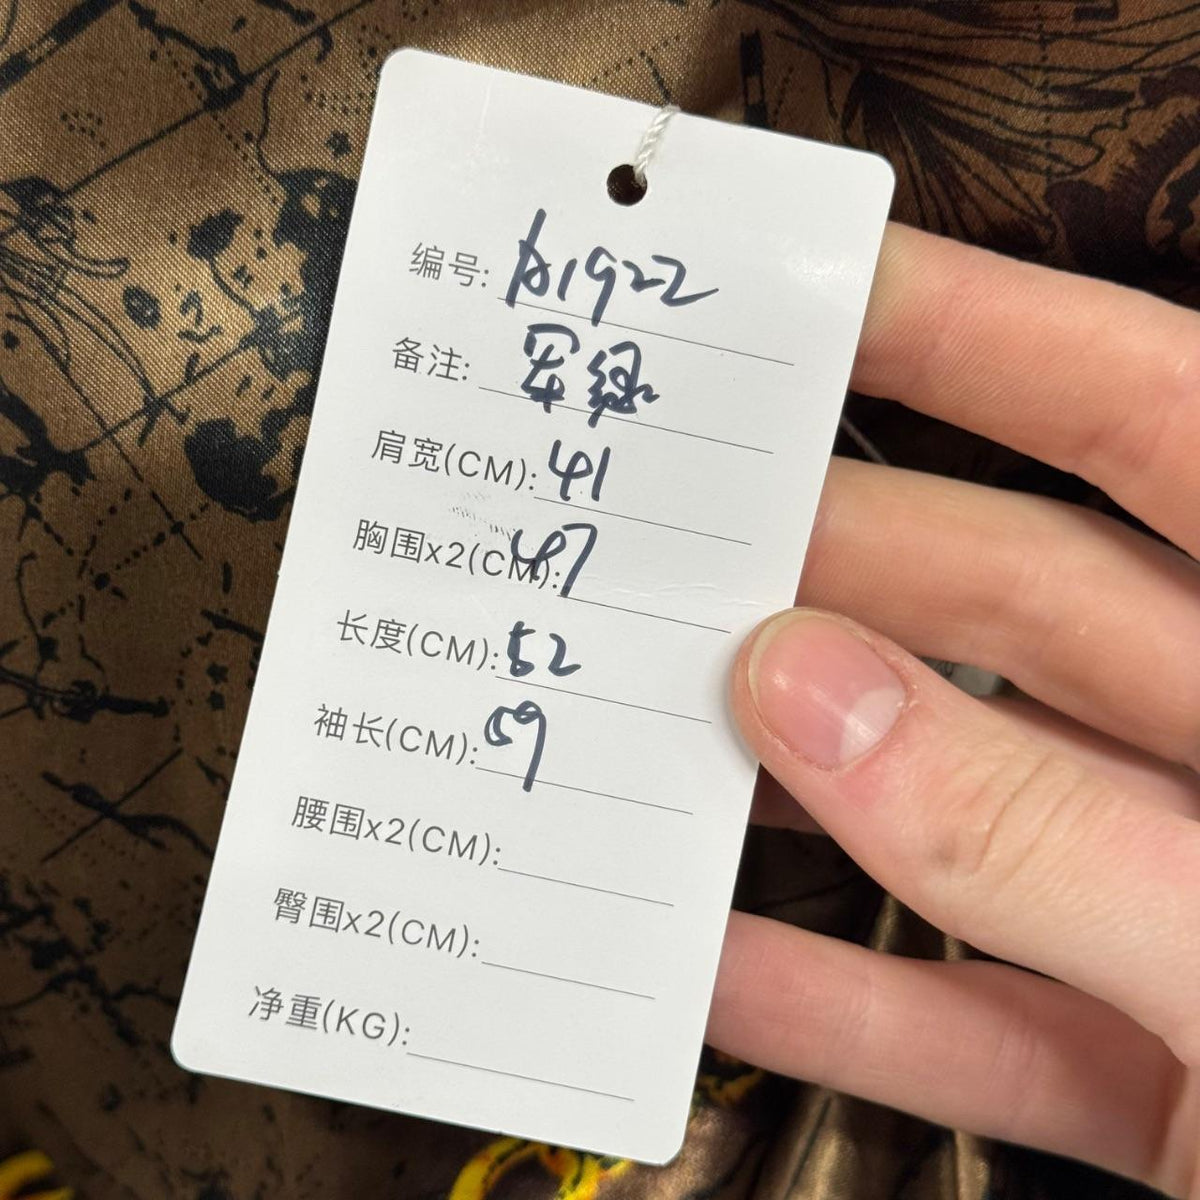 编号: A1922
备注: 军绿
肩宽(CM): 41
胸围x2(CM): 47
长度(CM): 52
袖长(CM): 59
腰围x2(CM):
臀围x2(CM):
净重(KG):